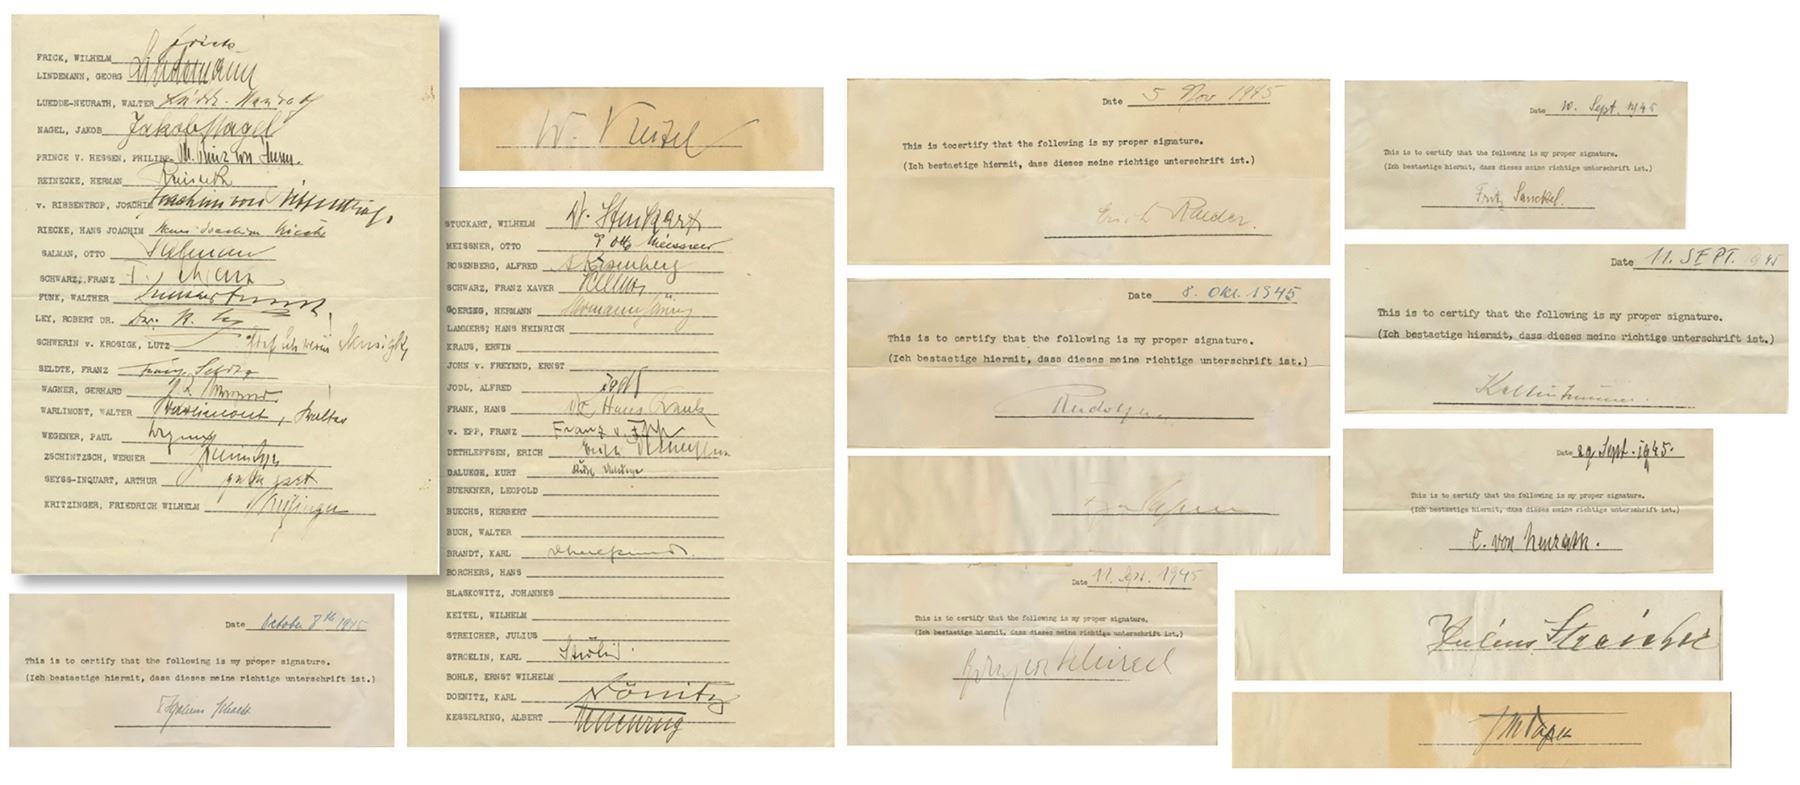 FRICK, WILHELM Frick
LINDEMANN, GEORG Lindemann
LUEDDE-NEURATH, WALTER Lüdde-Neurath
NAGEL, JAKOB Jakob Nagel
PRINCE V. HESSEN, PHILIPP
REINECKE, HERMAN Reinecke
v. RIBBENTROP, JOACHIM Joachim von Ribbentrop
RIECKE, HANS JOACHIM Hans-Joachim Riecke
SALMAN, OTTO Salman
SCHWARZ, FRANZ
FUNK, WALTHER
LEY, ROBERT DR. Dr. R. Ley
SCHWERIN v. KROSIGK, LUTZ
SELDTE, FRANZ Franz Seldte
WAGNER, GERHARD
WARLIMONT, WALTER Warlimont, Walter
WEGENER, PAUL Wegener
ZSCHINTZSCH, WERNER
SEYSS-INQUART, ARTHUR
KRITZINGER, FRIEDRICH WILHELM Kritzinger
Date October 8th 1945
This is to certify that the following is my proper signature.
(Ich bestaetige hiermit, dass dieses meine richtige unterschrift ist.)
Hjalmar Schacht
W. Keitel
STUCKART, WILHELM W. Stuckart
MEISSNER, OTTO Otto Meissner
ROSENBERG, ALFRED A Rosenberg
SCHWARZ, FRANZ XAVER
GOERING, HERMANN Hermann Göring
LAMMERS, HANS HEINRICH
KRAUS, ERWIN
JOHN v. FREYEND, ERNST
JODL, ALFRED Jodl
FRANK, HANS Dr Hans Frank
v. EPP, FRANZ Franz v. Epp
DETHLEFFSEN, ERICH Erich Dethleffsen
DALUEGE, KURT
BUERKNER, LEOPOLD
BUECHS, HERBERT
BUCH, WALTER
BRANDT, KARL
BORCHERS, HANS
BLASKOWITZ, JOHANNES
KEITEL, WILHELM
STREICHER, JULIUS
STROELIN, KARL Strölin
BOHLE, ERNST WILHELM
DOENITZ, KARL Dönitz
KESSELRING, ALBERT Kesselring
Date 5 Nov 1945
This is tocertify that the following is my proper signature.
(Ich bestaetige hiermit, dass dieses meine richtige unterschrift ist.)
Erich Raeder.
Date 8. Okt. 1945
This is to certify that the following is my proper signature.
(Ich bestaetige hiermit, dass dieses meine richtige unterschrift ist.)
Date 11. Spt. 1945
This is to certify that the following is my proper signature.
(Ich bestaetige hiermit, dass dieses meine richtige unterschrift ist.)
Date 10. Sept. 1945
This is to certify that the following is my proper signature.
(Ich bestaetige hiermit, dass dieses meine richtige unterschrift ist.)
Fritz Sauckel.
Date 11. SEPT. 1945
This is to certify that the following is my proper signature.
(Ich bestaetige hiermit, dass dieses meine richtige unterschrift ist.)
Kaltenbrunner.
Date 29. Sept. 1945.
This is to certify that the following is my proper signature.
(Ich bestaetige hiermit, dass dieses meine richtige unterschrift ist.)
C. von Neurath.
Julius Streicher